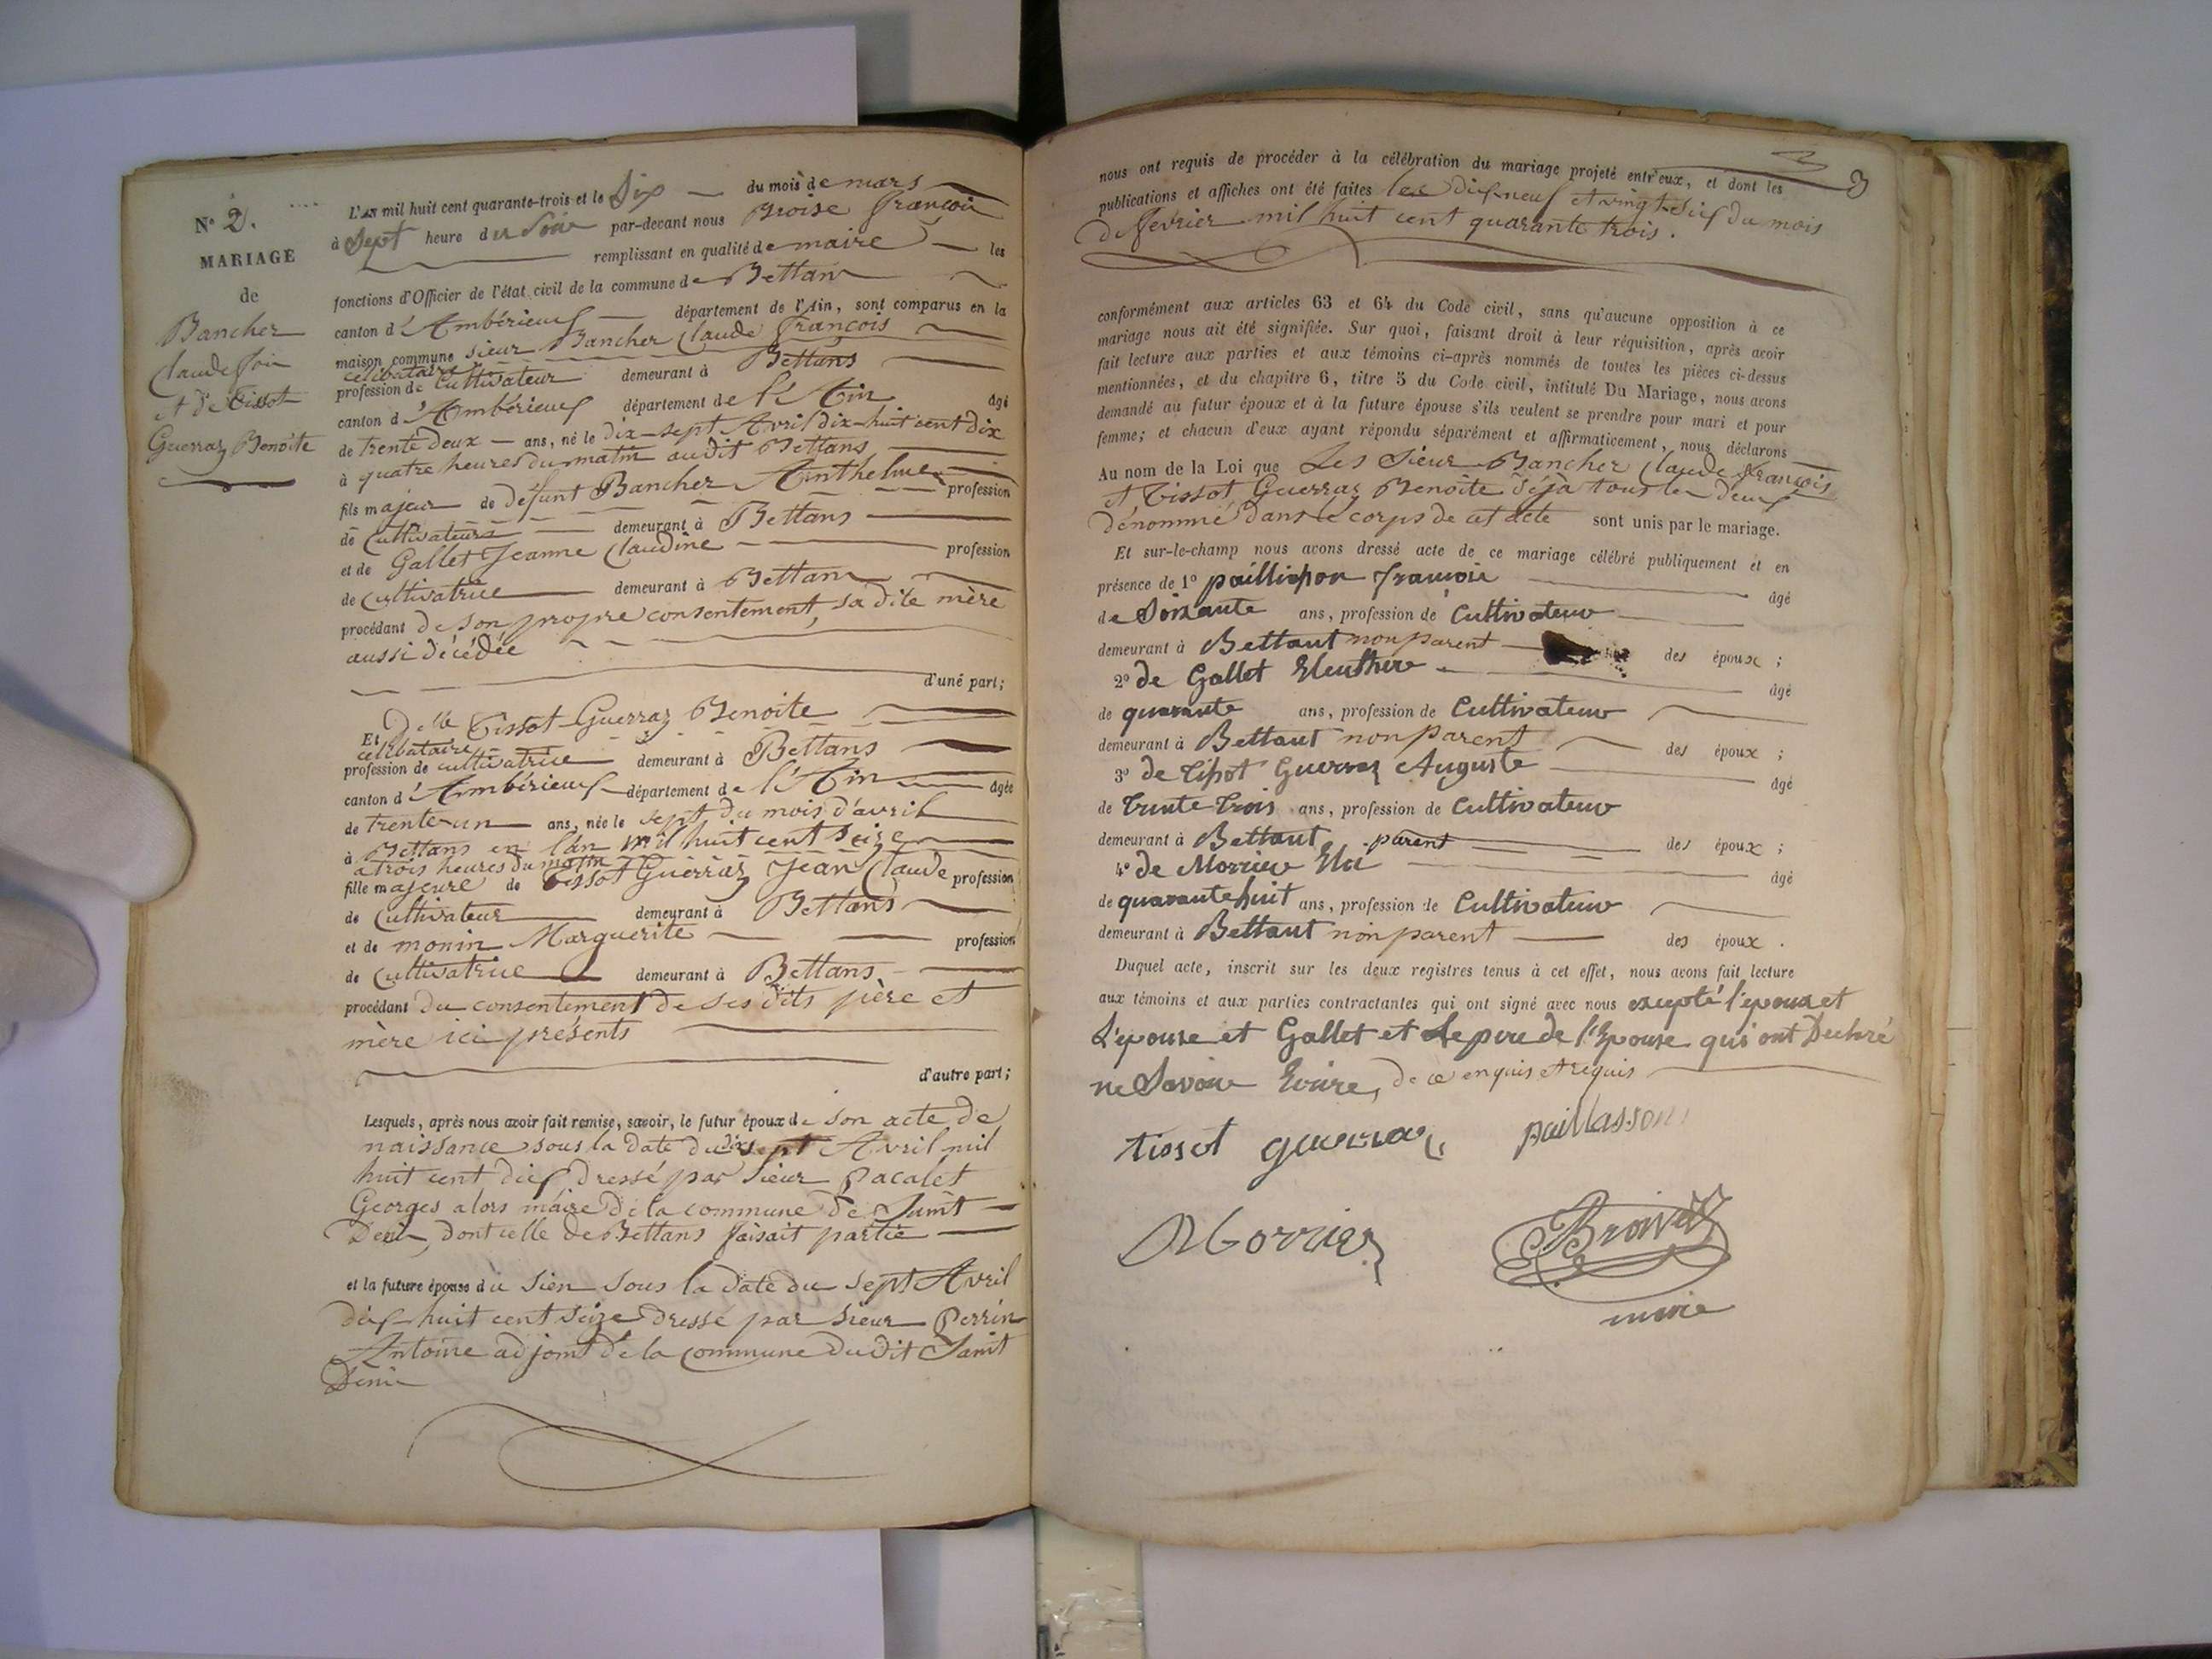 N° 2.
MARIAGE
de
Bancher
Claude fois
et de Tissot
Guerraz Benoite
L'AN mil huit cent quarante-trois et le Six du mois de mars
à Sept heure du Soir par-devant nous Broise françois
remplissant en qualité de maire les
fonctions d'Officier de l'état civil de la commune de Bettans
canton d'Ambérieux département de l'Ain, sont comparus en la
maison commune sieur Bancher Claude François
célibataire
profession de Cultivateur demeurant à Bettans
canton d'Ambérieux département de l'Ain âgé
de trente deux ans, né le dix-sept Avril dix-huit cent dix
à quatre heures du matin audit Bettans
fils majeur de défunt Bancher Anthelme profession
de Cultivateurs demeurant à Bettans
et de Gallet Jeanne Claudine profession
de Cultivatrice demeurant à Bettans
procédant de son propre consentement, sa dite mère
aussi décédée
d'une part;
Et Delle Tissot-Guerraz Benoite
célibataire
profession de cultivatrice demeurant à Bettans
canton d'Ambérieux département de l'Ain âgée
de trente-un ans, née le sept du mois d'avril
à Bettans en l'an mil huit cent seize
a trois heures du matin
fille majeure de Tissot Guerraz Jean Claude profession
de Cultivateur demeurant à Bettans
et de monin Marguerite profession
de Cultivatrice demeurant à Bettans
procédant du consentement de ses dits père et
mère ici présents
d'autre part;
Lesquels, après nous avoir fait remise, savoir, le futur époux de son acte de
naissance sous la date du dix sept Avril mil
huit cent dix dressé par sieur Pacalet
Georges alors maire de la commune de Saint
Denis, dont celle de Bettans faisait partie
et la future épouse du sien sous la date du sept Avril
dix-huit cent seize dressé par sieur Perrin
Antoine adjoint de la commune dudit Saint
Denis
3
nous ont requis de procéder à la célébration du mariage projeté entr'eux, et dont les
publications et affiches ont été faites les dix-neuf et vingt-six du mois
de fevrier mil huit cent quarante trois.
conformément aux articles 63 et 64 du Code civil, sans qu'aucune opposition à ce
mariage nous ait été signifiée. Sur quoi, faisant droit à leur réquisition, après avoir
fait lecture aux parties et aux témoins ci-après nommés de toutes les pièces ci-dessus
mentionnées, et du chapitre 6, titre 5 du Code civil, intitulé Du Mariage, nous avons
demandé au futur époux et à la future épouse s'ils veulent se prendre pour mari et pour
femme; et chacun d'eux ayant répondu séparément et affirmativement, nous déclarons
Au nom de la Loi que Les Sieur Bancher Claude François
et Tissot Guerraz Benoite déja tous les deux
dénommé dans le corps de cet acte sont unis par le mariage.
Et sur-le-champ nous avons dressé acte de ce mariage célébré publiquement et en
présence de 1° paillisson françois âgé
de Soixante ans, profession de Cultivateur
demeurant à Bettant non parent des époux;
2° de Gallet Eleuthere âgé
de quarante ans, profession de Cultivateur
demeurant à Bettant non parent des époux;
3° de Tissot Guerraz Auguste âgé
de trente trois ans, profession de Cultivateur
demeurant à Bettant parent des époux;
4° de Morrier Eli âgé
de quarante huit ans, profession de Cultivateur
demeurant à Bettant non parent des époux.
Duquel acte, inscrit sur les deux registres tenus à cet effet, nous avons fait lecture
aux témoins et aux parties contractantes qui ont signé avec nous excepté l'epoux et
L'epouse et Gallet et Le pere de l'Epouse qui ont Declaré
ne Savoir Ecrire, de ce enquis et requis
tissot guerraz paillasson
Morrier Broise
maire